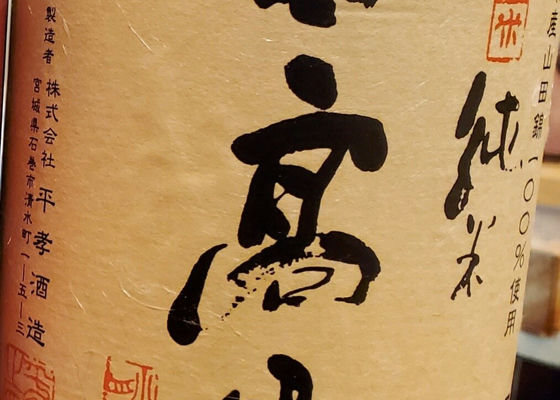 産山田錦一〇〇%使用
米
純米
高
製造者 株式会社 平孝酒造
宮城県石巻市清水町一ー五ー三